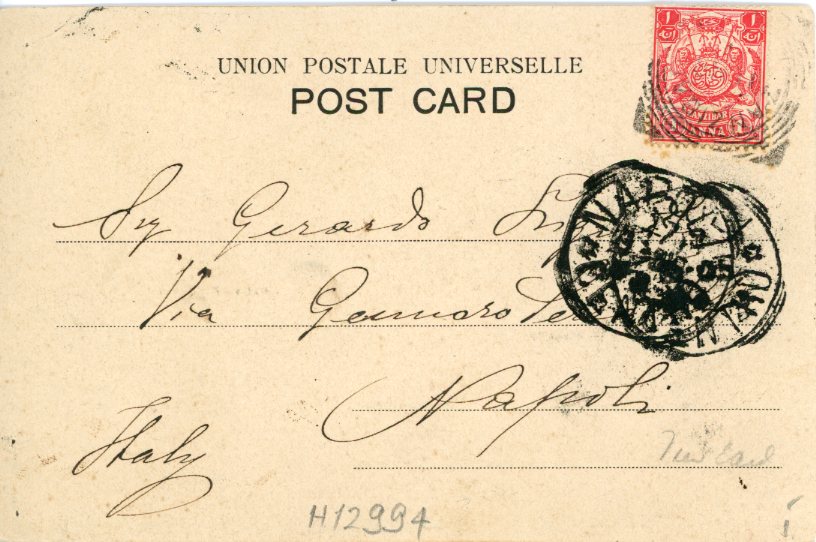 UNION POSTALE UNIVERSELLE
POST CARD
1 1
ZANZIBAR
ANNA 1
NAPOLI
Sig Gerardo
Via Gennaro
Napoli
Italy
H12994